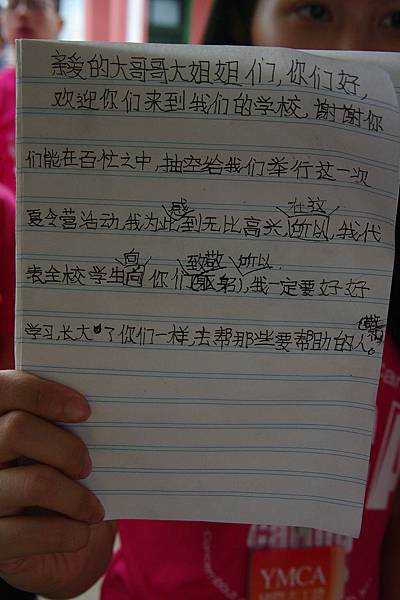 亲爱的大哥哥大姐姐们，你们好，
欢迎你们来到我们的学校，谢谢你
们能在百忙之中，抽空给我们举行这一次
感 在这
夏令营活动，我为此到无比高兴，所以，我代
向 致敬 所以
表全校学生向你们(鞠躬)，我一定要好好
学习，长大了你们一样，去帮那些要帮助的人。
YMCA